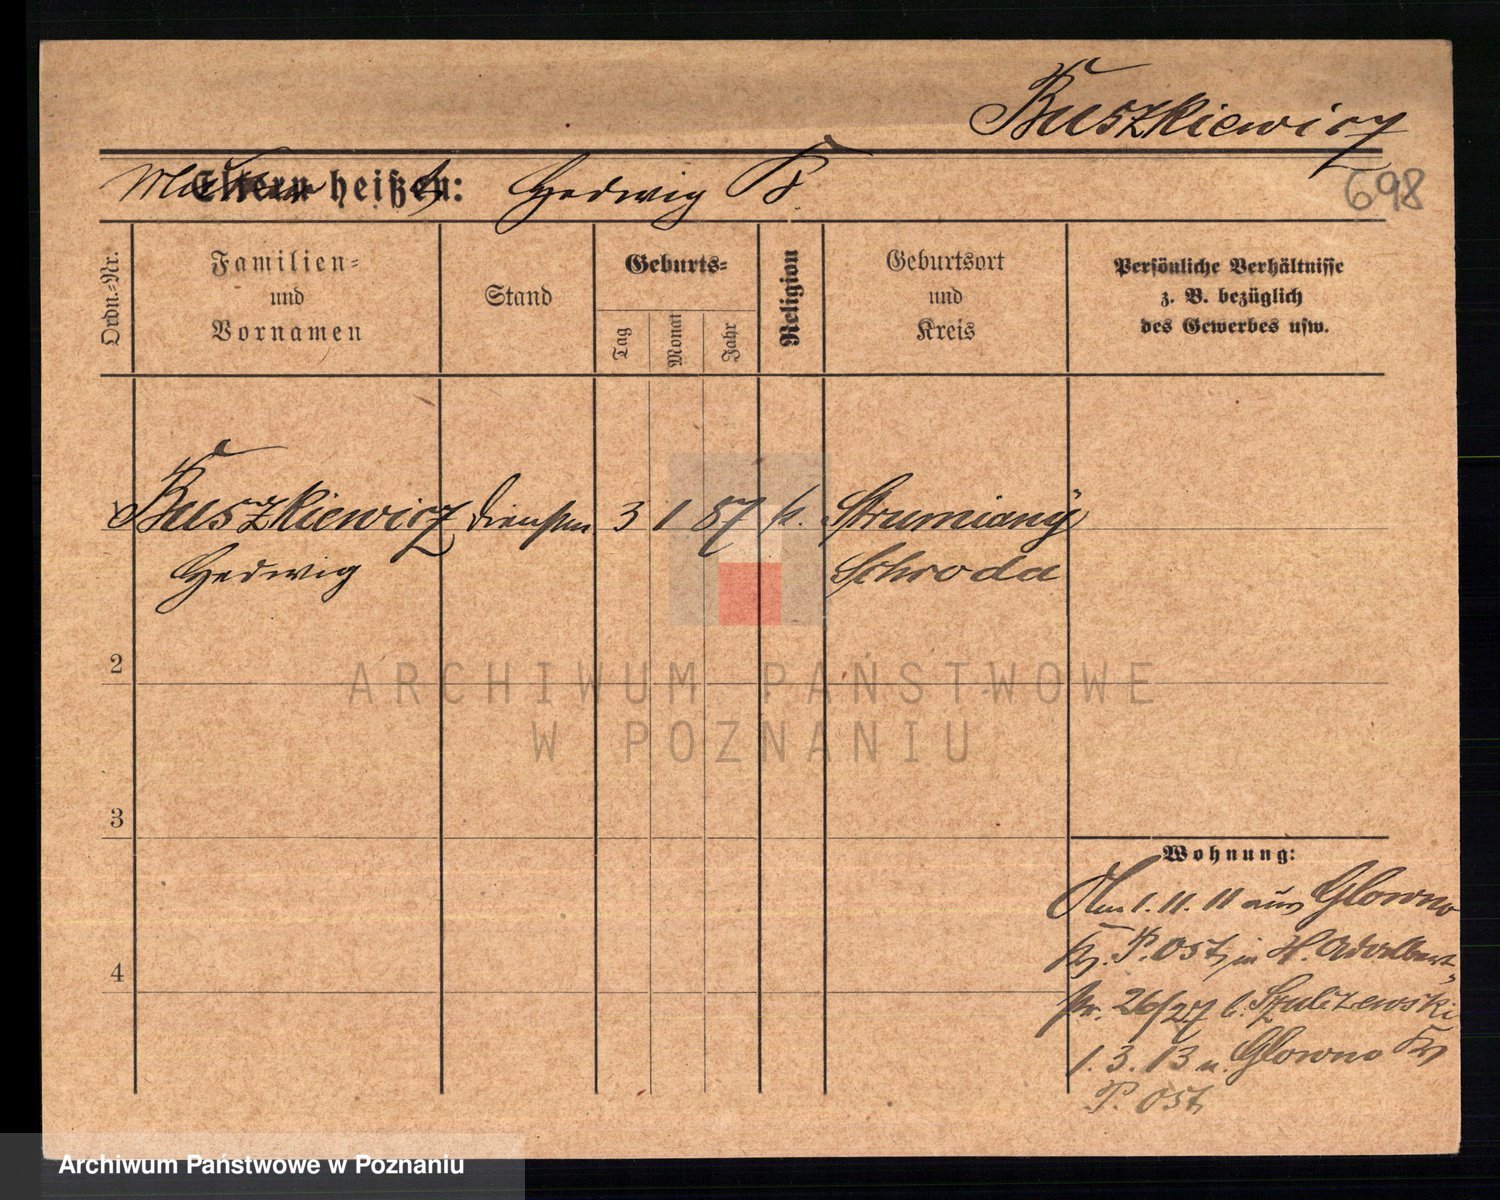 Ruszkiewicz
Eltern heißen:
Mutter Hedwig R.
698
Ordn.-Nr.
Familien-
und
Vornamen
Stand
Geburts-
Tag
Monat
Jahr
Religion
Geburtsort
und
Kreis
Persönliche Verhältnisse
z. B. bezüglich
des Gewerbes usw.
Ruszkiewicz 3 1 87 k. Strumiany
Hedwig Schroda
2
3
4
Wohnung:
Am 1.11.11 aus Glowno
Kr. P. Ost in H. Adalbert-
str. 26/27 b. Szulczewski
1.3.13 n. Glowno Kr
P. Ost
ARCHIWUM PAŃSTWOWE
W POZNANIU
Archiwum Państwowe w Poznaniu